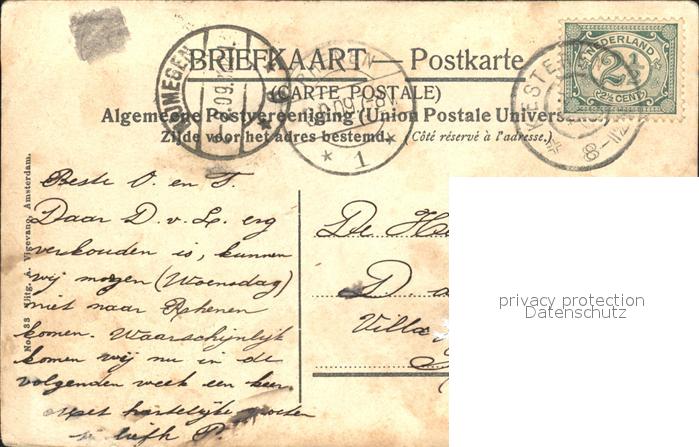 BRIEFKAART — Postkarte
(CARTE POSTALE)
Algemeene Postvereeniging (Union Postale Univers
Zijde voor het adres bestemd. (Côté réservé à l'adresse.)
NEDERLAND
2½
(2½ CENT)
1
Uitg. A. Vigevano, Amsterdam.
Beste O. en T.
Daar D. v. L. erg
verkouden is, kunnen
wij morgen (Woensdag)
niet naar Rhenen
komen. Waarschijnlijk
komen wij nu in de
volgenden week een keer.
Met hartelijke groeten
De
D.
Villa
privacy protection
Datenschutz